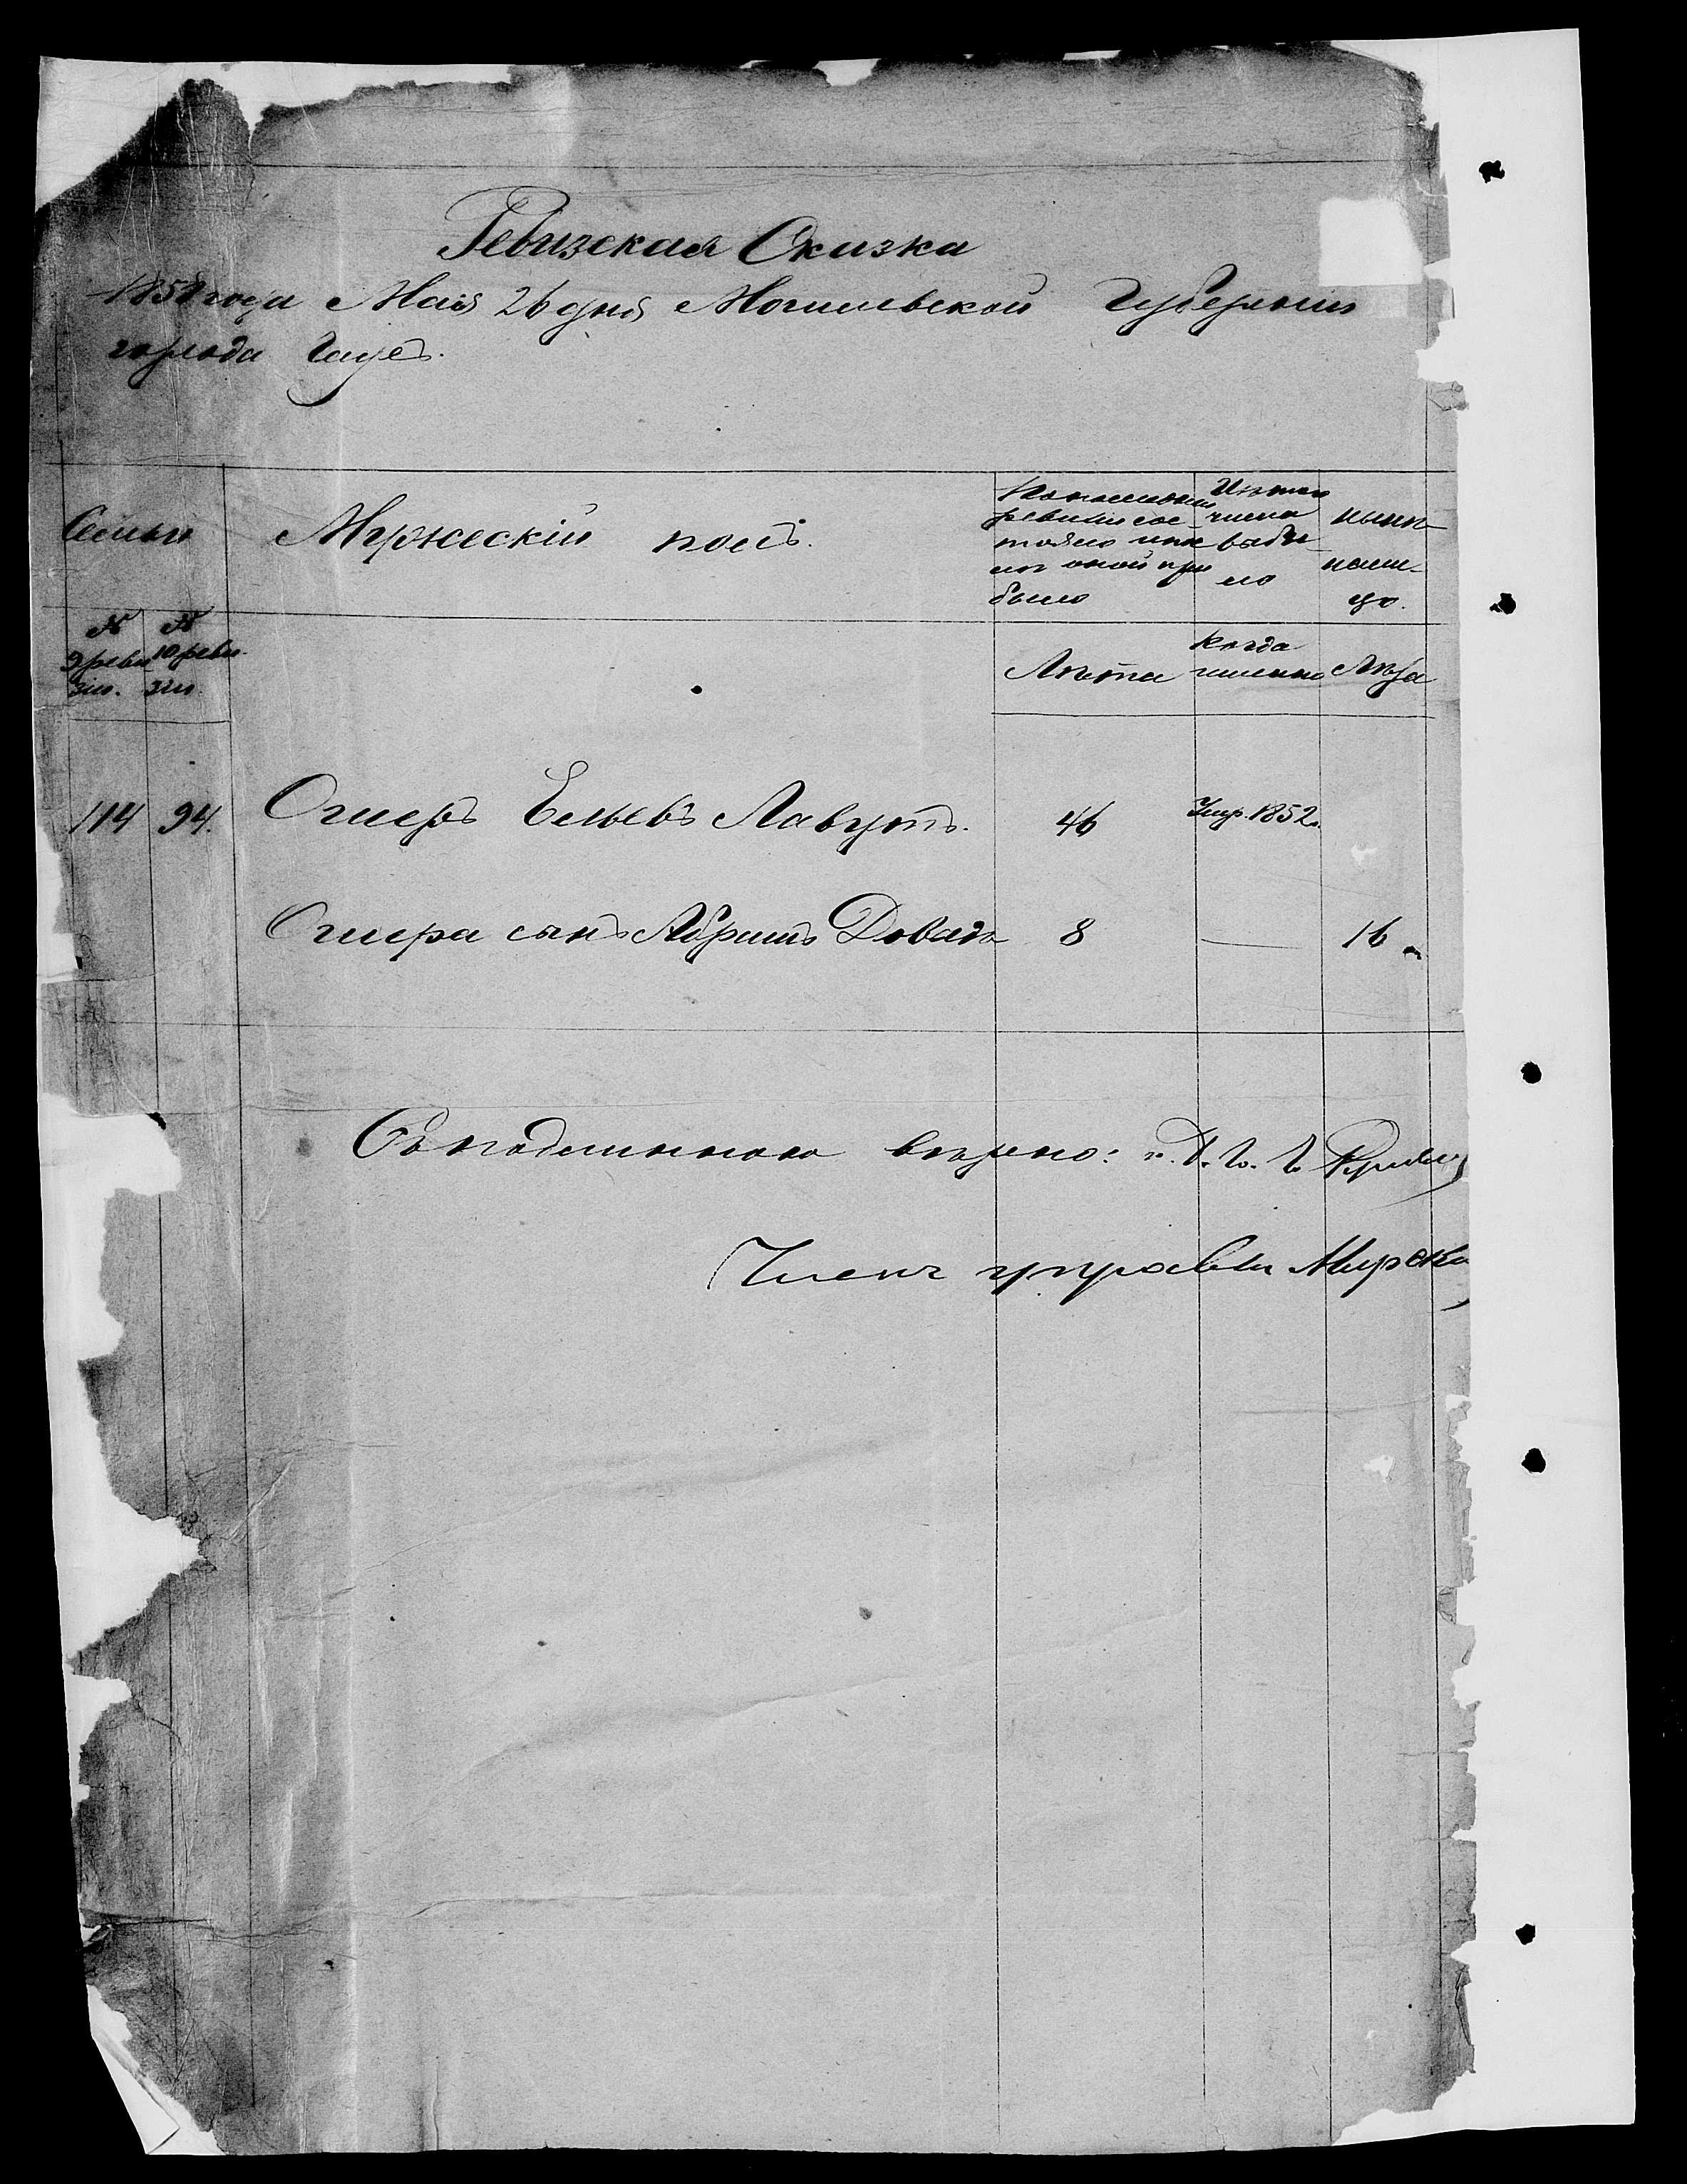 Ревизская Сказка
1858 года Мая 26 дня Могилевской Губернии
города Чаусъ.
Семьи
Мужескій полъ.
По последней
ревизіи сос-
тояло или пос-
лѣ оной при
было
Изъ того
числа
выбы-
ло
нынѣ
на ли-
цо.
№
9 реви
зіи.
№
10 реви
зіи.
Лѣта
Когда
именно
Лѣта
114 94. Ошеръ Ельевъ Лавутъ. 46 Умр. 1852.
Ошера сынъ Абрамъ Довидъ 8 — 16
Съ подлиннымъ вѣрно:
Членъ управы Мирскій